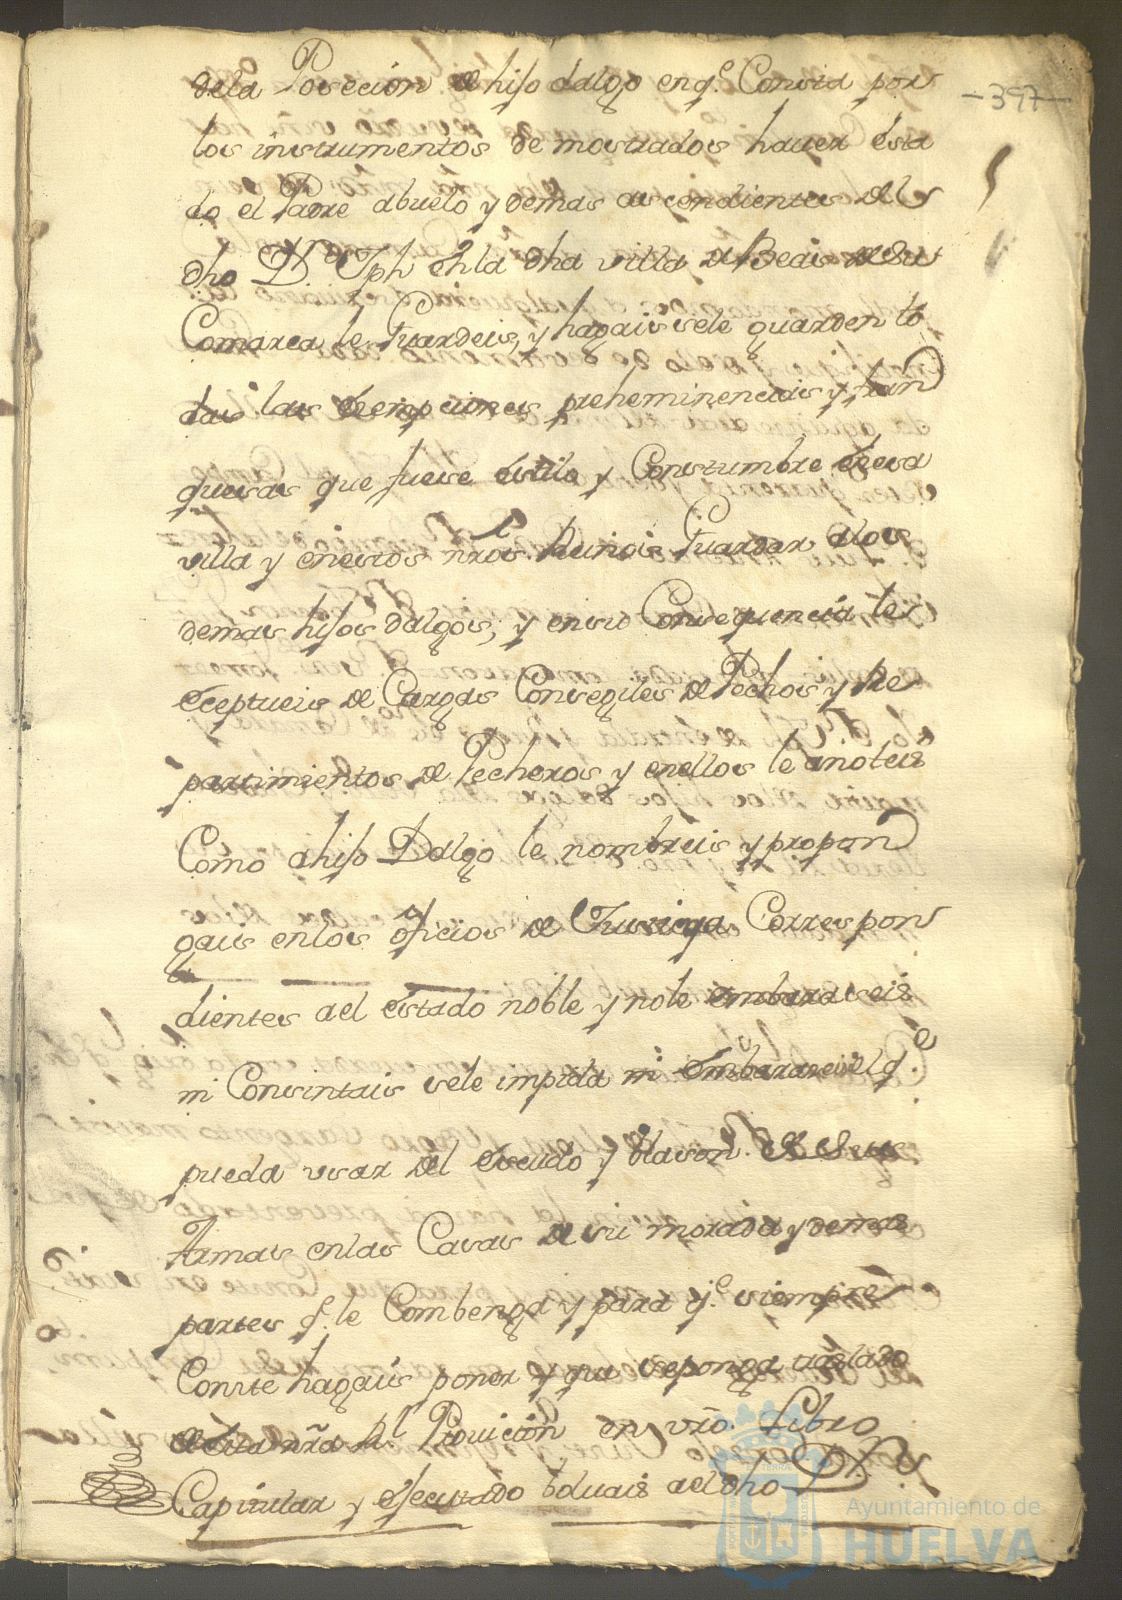 dela Poseción de hijo dalgo en q.^e Consta por
los instrumentos demostrados hauer esta
do el Padre abuelo y demas ascendientes del
dho D.^n Jph en la dha villa de Beas de su
Comarca le Guardeis, y hagais sele guarden to
das las esempciones preheminencias y fran
quesas que fuese estilo y Constumbre en esa
villa y en estos nros Reinos Guardar alos
demas hijos dalgos, y en su Consequencia le
exceptueis de Cargas Consegiles de Pechos y Re
partimientos de Pecheros y en ellos le anoteis
Como a hijo Dalgo le nombreis y propon
gais en los oficios de Justicia Correspon
dientes al estado noble y no le embaraseis
ni Consintais se le impida ni embarase el q.^e
pueda usar del escudo y blason de sus
Armas en las Casas de su morada y demas
partes q.^e le Combenga y para q.^e siempre
Conste hagais poner y que se ponga traslado
de esta nra R.^l Prouición en vro. Libro
Capitular y esecutado boluais al dho D.^n
-397-
Ayuntamiento de
HUELVA